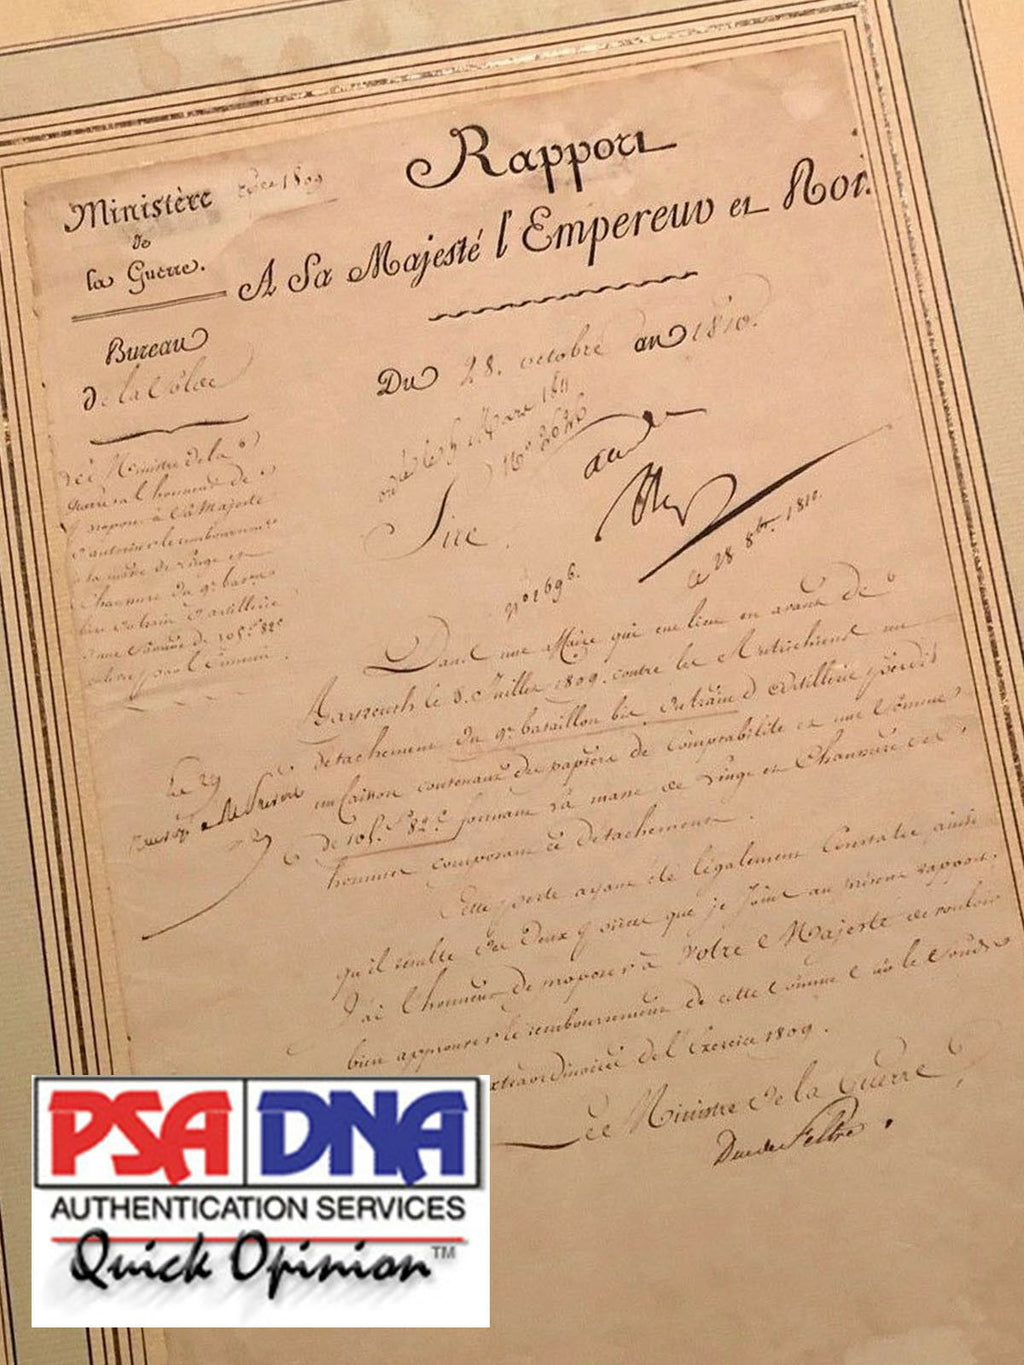 Ministère
de
la Guerre.
1809
Rapport
A Sa Majesté l'Empereur et Roi.
Bureau
de la Solde
Du 28. octobre an 1810.
Le Ministre de la
guerre a l'honneur de
proposer à Sa Majesté
d'autoriser le remboursement
à la masse de Linge et
Chaussure du 9e. bataillon
bis du train d'artillerie
d'une somme de 105f. 82c
mars 1811
Sire.
le 28 8bre. 1810.
Dans une affaire qui eut lieu en avant de
Bayreuth le 8. Juillet 1809. contre les Autrichiens un
détachement du 9e. bataillon bis du train d'artillerie perdit
un Caisson contenant des papiers de comptabilité et une Somme
de 105f. 82c. formant la masse de Linge et Chaussure des
hommes composant ce détachement.
Cette perte ayant été légalement Constatée ainsi
qu'il résulte des deux pièces que je Joins au présent rapport,
J'ai l'honneur de proposer à Votre Majesté de vouloir
bien approuver le remboursement de cette Somme sur le fonds
extraordinaire de l'Exercice 1809.
Le 29
Le Ministre de la Guerre,
Duc de Feltre.
PSA DNA
AUTHENTICATION SERVICES
Quick Opinion™